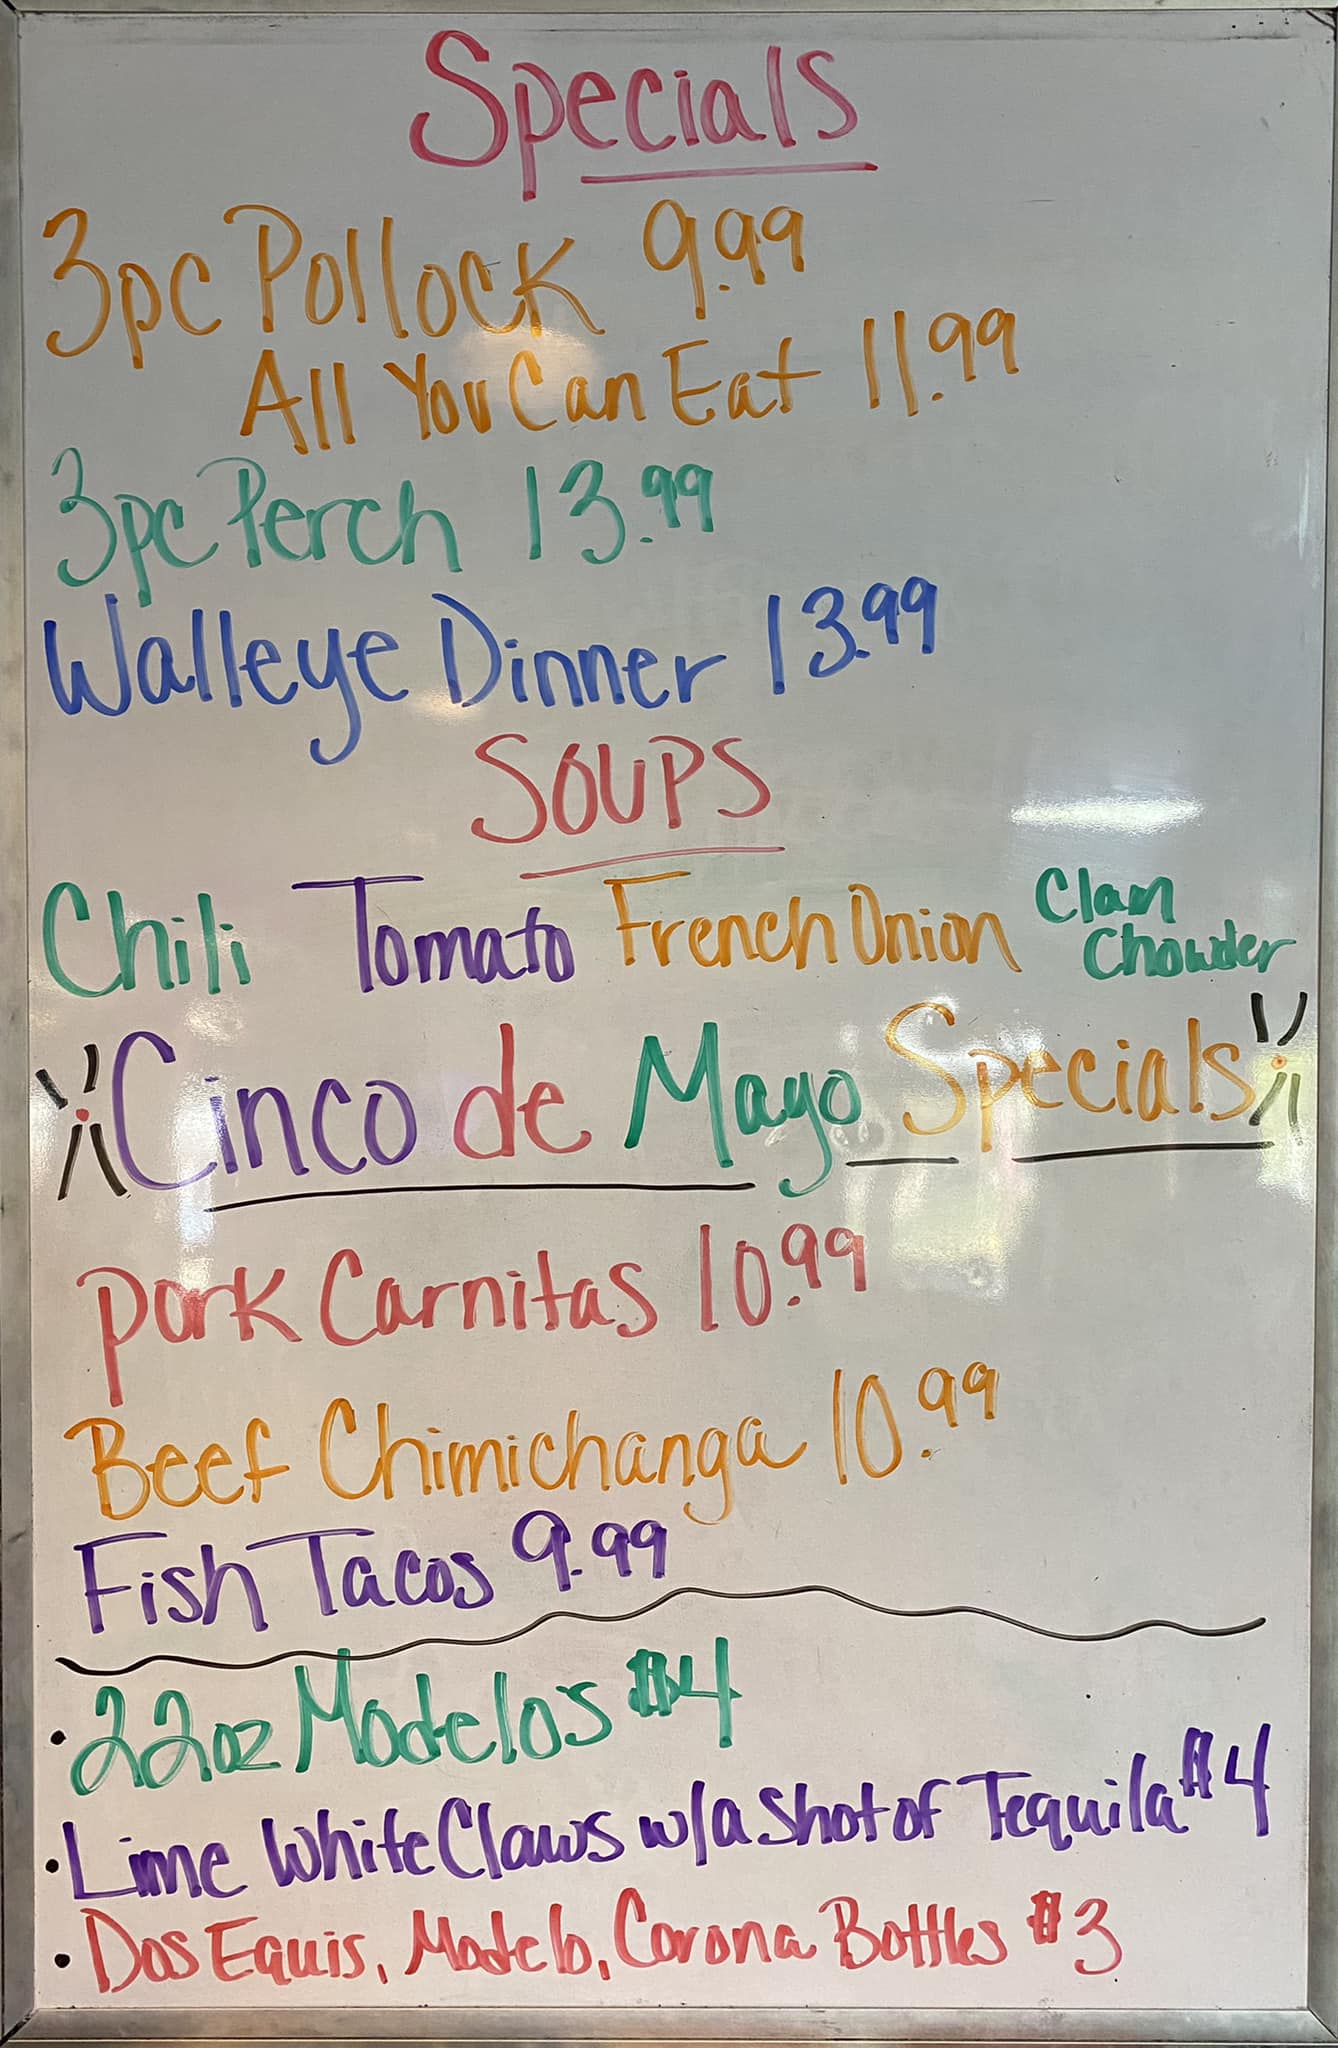 Specials
3pc Pollock 9.99
All You Can Eat 11.99
3pc Perch 13.99
Walleye Dinner 13.99
SOUPS
Chili Tomato French Onion Clam Chowder
Cinco de Mayo Specials
Pork Carnitas 10.99
Beef Chimichanga 10.99
Fish Tacos 9.99
• 22oz Modelos $4
• Lime White Claws w/a Shot of Tequila $4
• Dos Equis, Modelo, Corona Bottles $3